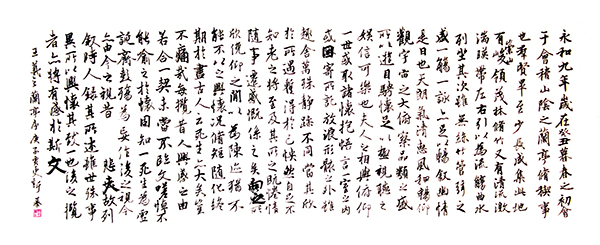 永和九年歲在癸丑暮春之初會
于會稽山陰之蘭亭脩稧事
也羣賢畢至少長咸集此地
有崇山峻領茂林脩竹又有清流激
湍暎帶左右引以為流觴曲水
列坐其次雖無絲竹管弦之
盛一觴一詠亦足以暢敘幽情
是日也天朗氣清惠風和暢仰
觀宇宙之大俯察品類之盛
所以遊目騁懷足以極視聽之
娛信可樂也夫人之相與俯仰
一世或取諸懷抱悟言一室之內
或因寄所託放浪形骸之外雖
趣舍萬殊靜躁不同當其欣
於所遇蹔得於己怏然自足不
知老之將至及其所之既惓情
隨事遷感慨係之矣向之所
欣俛仰之閒以為陳迹猶不
能不以之興懷況脩短隨化終
期於盡古人云死生亦大矣豈
不痛哉每攬昔人興感之由
若合一契未嘗不臨文嗟悼不
能喻之於懷固知一死生為虛
誕齊彭殤為妄作後之視今
亦由今之視昔悲夫故列
敘時人錄其所述雖世殊事
異所以興懷其致一也後之攬
者亦將有感於斯文
王羲之蘭亭序庚子